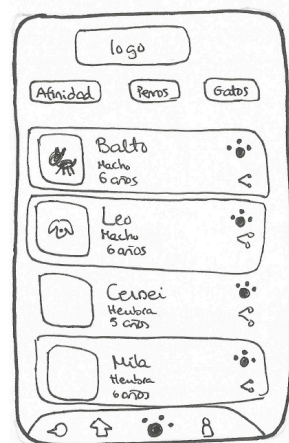 logo
Afinidad Perros Gatos
Balto
Macho
6 años
Leo
Macho
6 años
Cersei
Hembra
5 años
Mila
Hembra
6 años